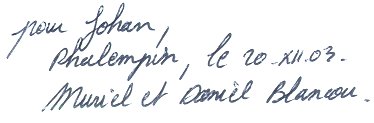 pour Johan,
Phalempin, le 20-XII.03.
Muriel et Daniel Blancou.